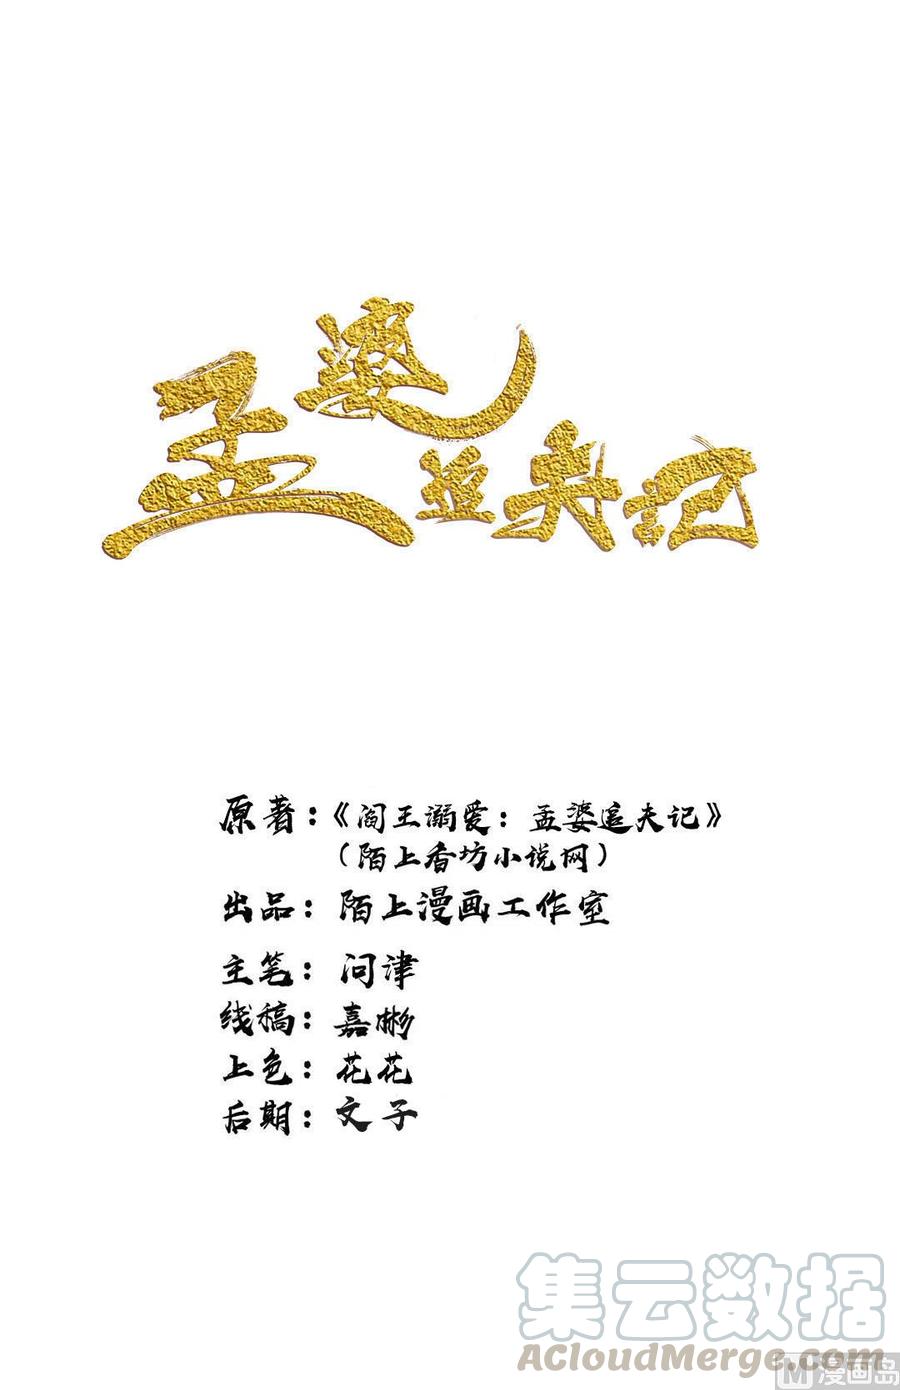 孟婆追夫记
原著：《阎王溺爱：孟婆追夫记》
（陌上香坊小说网）
出品：陌上漫画工作室
主笔：问津
线稿：嘉彬
上色：花花
后期：文子
集云数据
ACloudMerge.com
M漫画岛